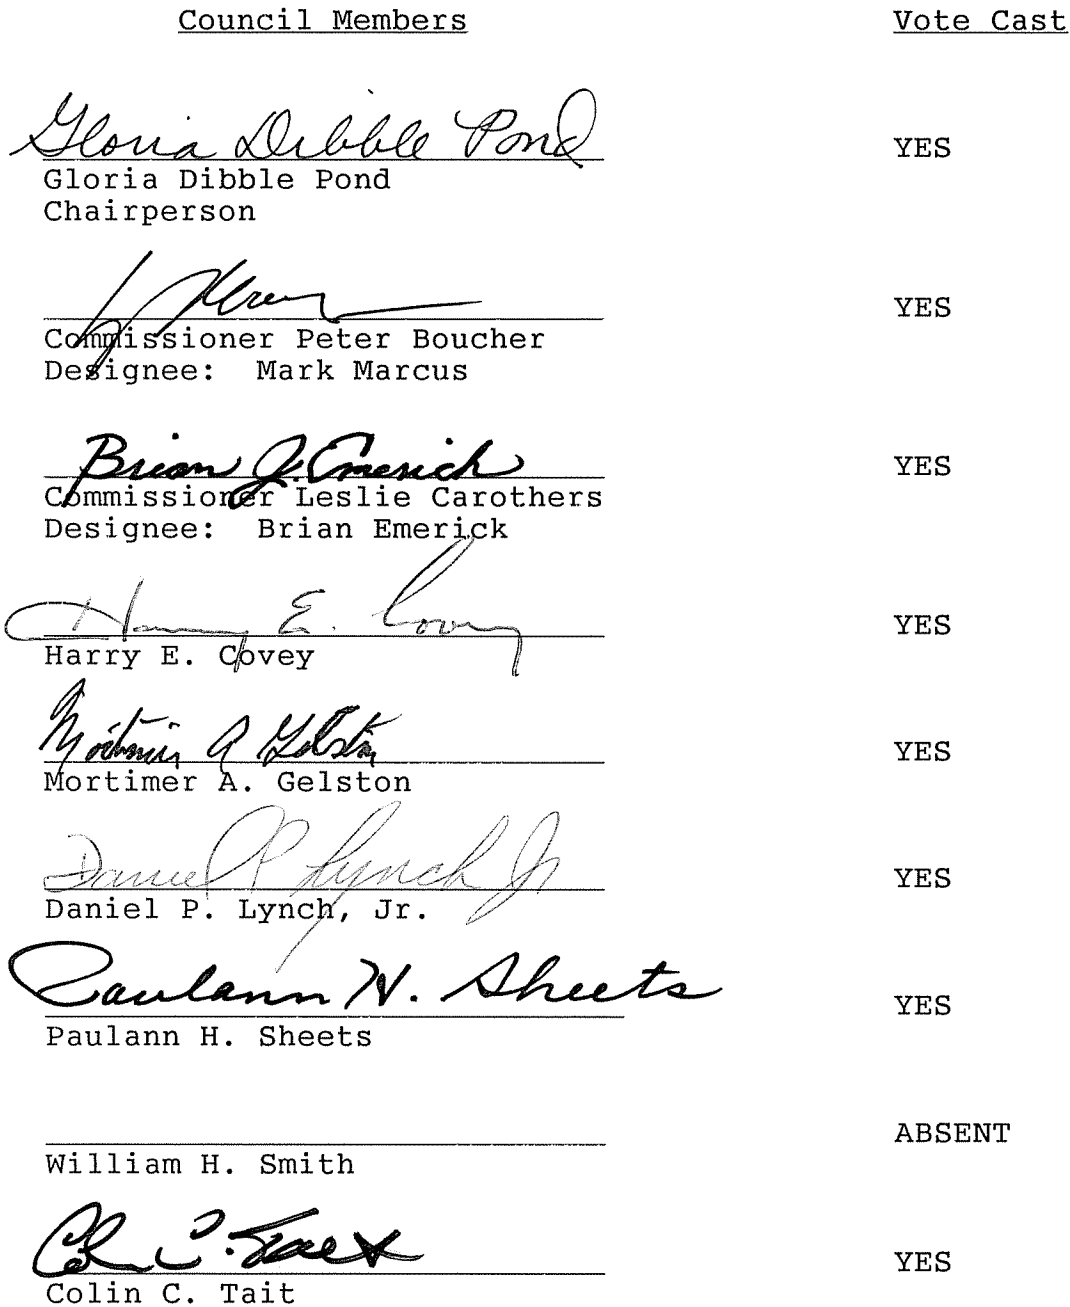 Council Members Vote Cast
Gloria Dibble Pond YES
Gloria Dibble Pond
Chairperson
YES
Commissioner Peter Boucher
Designee: Mark Marcus
Brian J. Emerick YES
Commissioner Leslie Carothers
Designee: Brian Emerick
Harry E. Covey YES
Harry E. Covey
Mortimer A Gelston YES
Mortimer A. Gelston
Daniel P Lynch Jr YES
Daniel P. Lynch, Jr.
Paulann H. Sheets YES
Paulann H. Sheets
ABSENT
William H. Smith
Colin C. Tait YES
Colin C. Tait